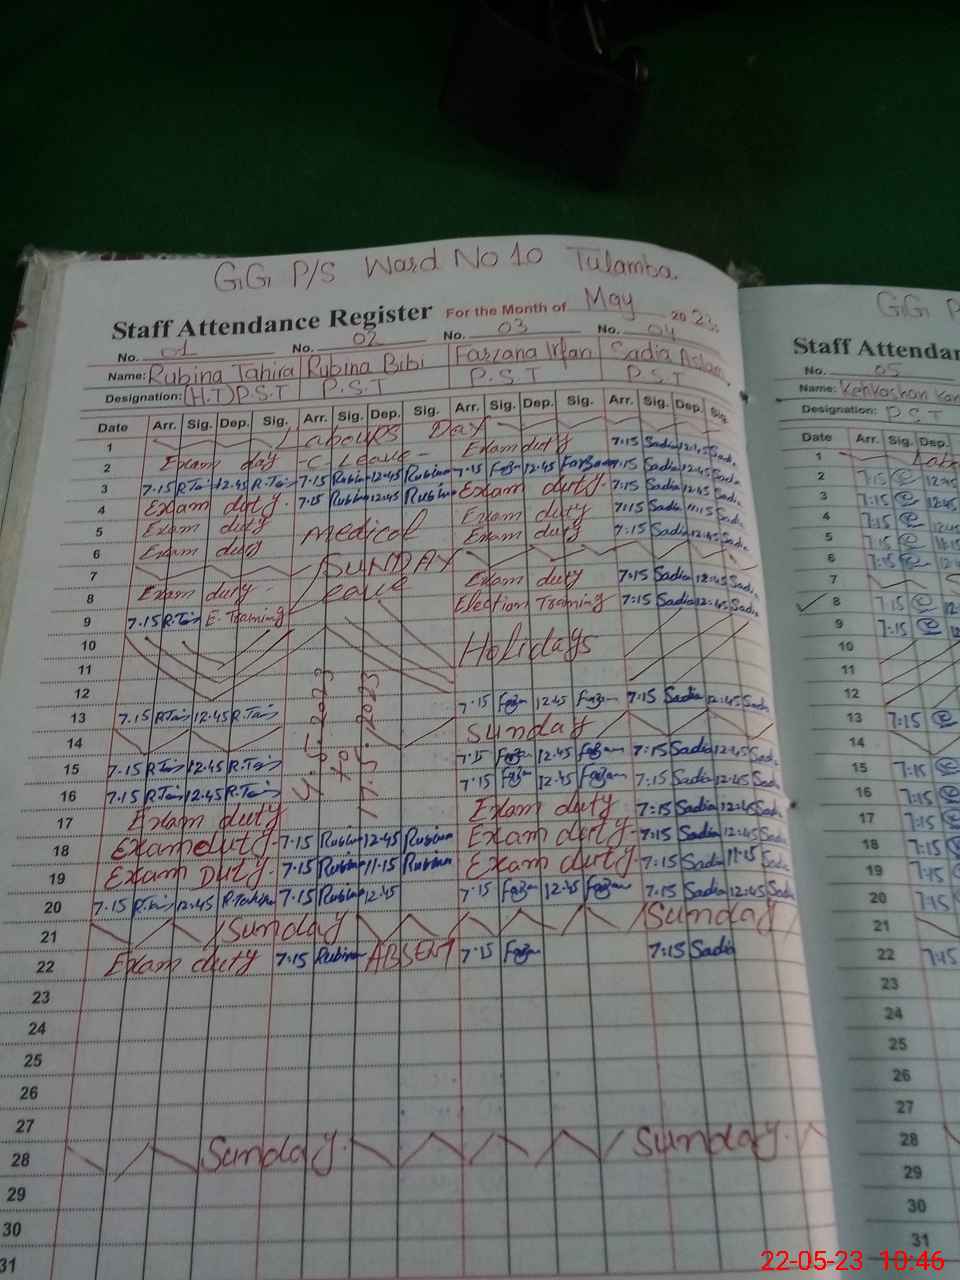 G.G. P/S Ward No 10 Tulamba.
Staff Attendance Register For the Month of May 2023
No. 01 No. 02 No. 03 No. 04
Name: Rubina Tahira Rubina Bibi Farzana Irfan Sadia Aslam
Designation: (H.T) P.S.T P.S.T P.S.T P.S.T
Date Arr. Sig. Dep. Sig. Arr. Sig. Dep. Sig. Arr. Sig. Dep. Sig. Arr. Sig. Dep. Sig.
1 Labours Day
2 Exam day - C Leave - Exam duty 7:15 Sadia 12:45 Sadia
3 7.15 R.Tai 12.45 R.Tai 7.15 Rubina 12.45 Rubina 7.15 12.45 7:15 Sadia 12:45 Sadia
4 Exam duty. 7.15 Rubina 12.45 Rubina Exam duty. 7:15 Sadia 12:45 Sadia
5 Exam duty medical Exam duty 7:15 Sadia 11:15 Sadia
6 Exam duty Exam duty 7:15 Sadia 12:45 Sadia
7 SUNDAY
8 Exam duty leave Exam duty 7:15 Sadia 12:45 Sadia
9 7.15 R.Tai E-Training Election Training 7:15 Sadia 12:45 Sadia
10 Holidays
11
12
13 7.15 R.Tai 12.45 R.Tai 7.15 12.45 7:15 Sadia 12:45 Sadia
14 Sunday
15 7.15 R.Tai 12.45 R.Tai 7.15 12.45 7:15 Sadia 12:45 Sadia
16 7.15 R.Tai 12.45 R.Tai 7.15 12.45 7:15 Sadia 12:45 Sadia
4.5.2023 to 17.5.2023
17 Exam duty Exam duty 7:15 Sadia 12:45 Sadia
18 Exam duty. 7.15 Rubina 12.45 Rubina Exam duty. 7:15 Sadia 12:45 Sadia
19 Exam Duty. 7.15 Rubina 11.15 Rubina Exam duty 7:15 Sadia 11:15 Sadia
20 7.15 R.Tai 12.45 R.Tahira 7.15 Rubina 12.45 7.15 12.45 7:15 Sadia 12:45 Sadia
21 Sunday Sunday
22 Exam duty 7:15 Rubina ABSENT 7.15 7:15 Sadia
23
24
25
26
27
28 Sunday. Sunday.
29
30
31
G.G P
Staff Attendan
No. 05
Name: Kehkashan Kan
Designation: P.S.T
Date Arr. Sig. Dep.
1 Lab
2 7:15 12:45
3 7:15 12:45
4 7:15 12:45
5 7:15 11:15
6 7:15
7
8 7:15
9 7:15
10
11
12
13 7:15
14
15 7:15
16 7:15
17 7:15
18 7:15
19 7:15
20 7:15
21
22 7:15
23
24
25
26
27
28
29
30
31
22-05-23 10:46